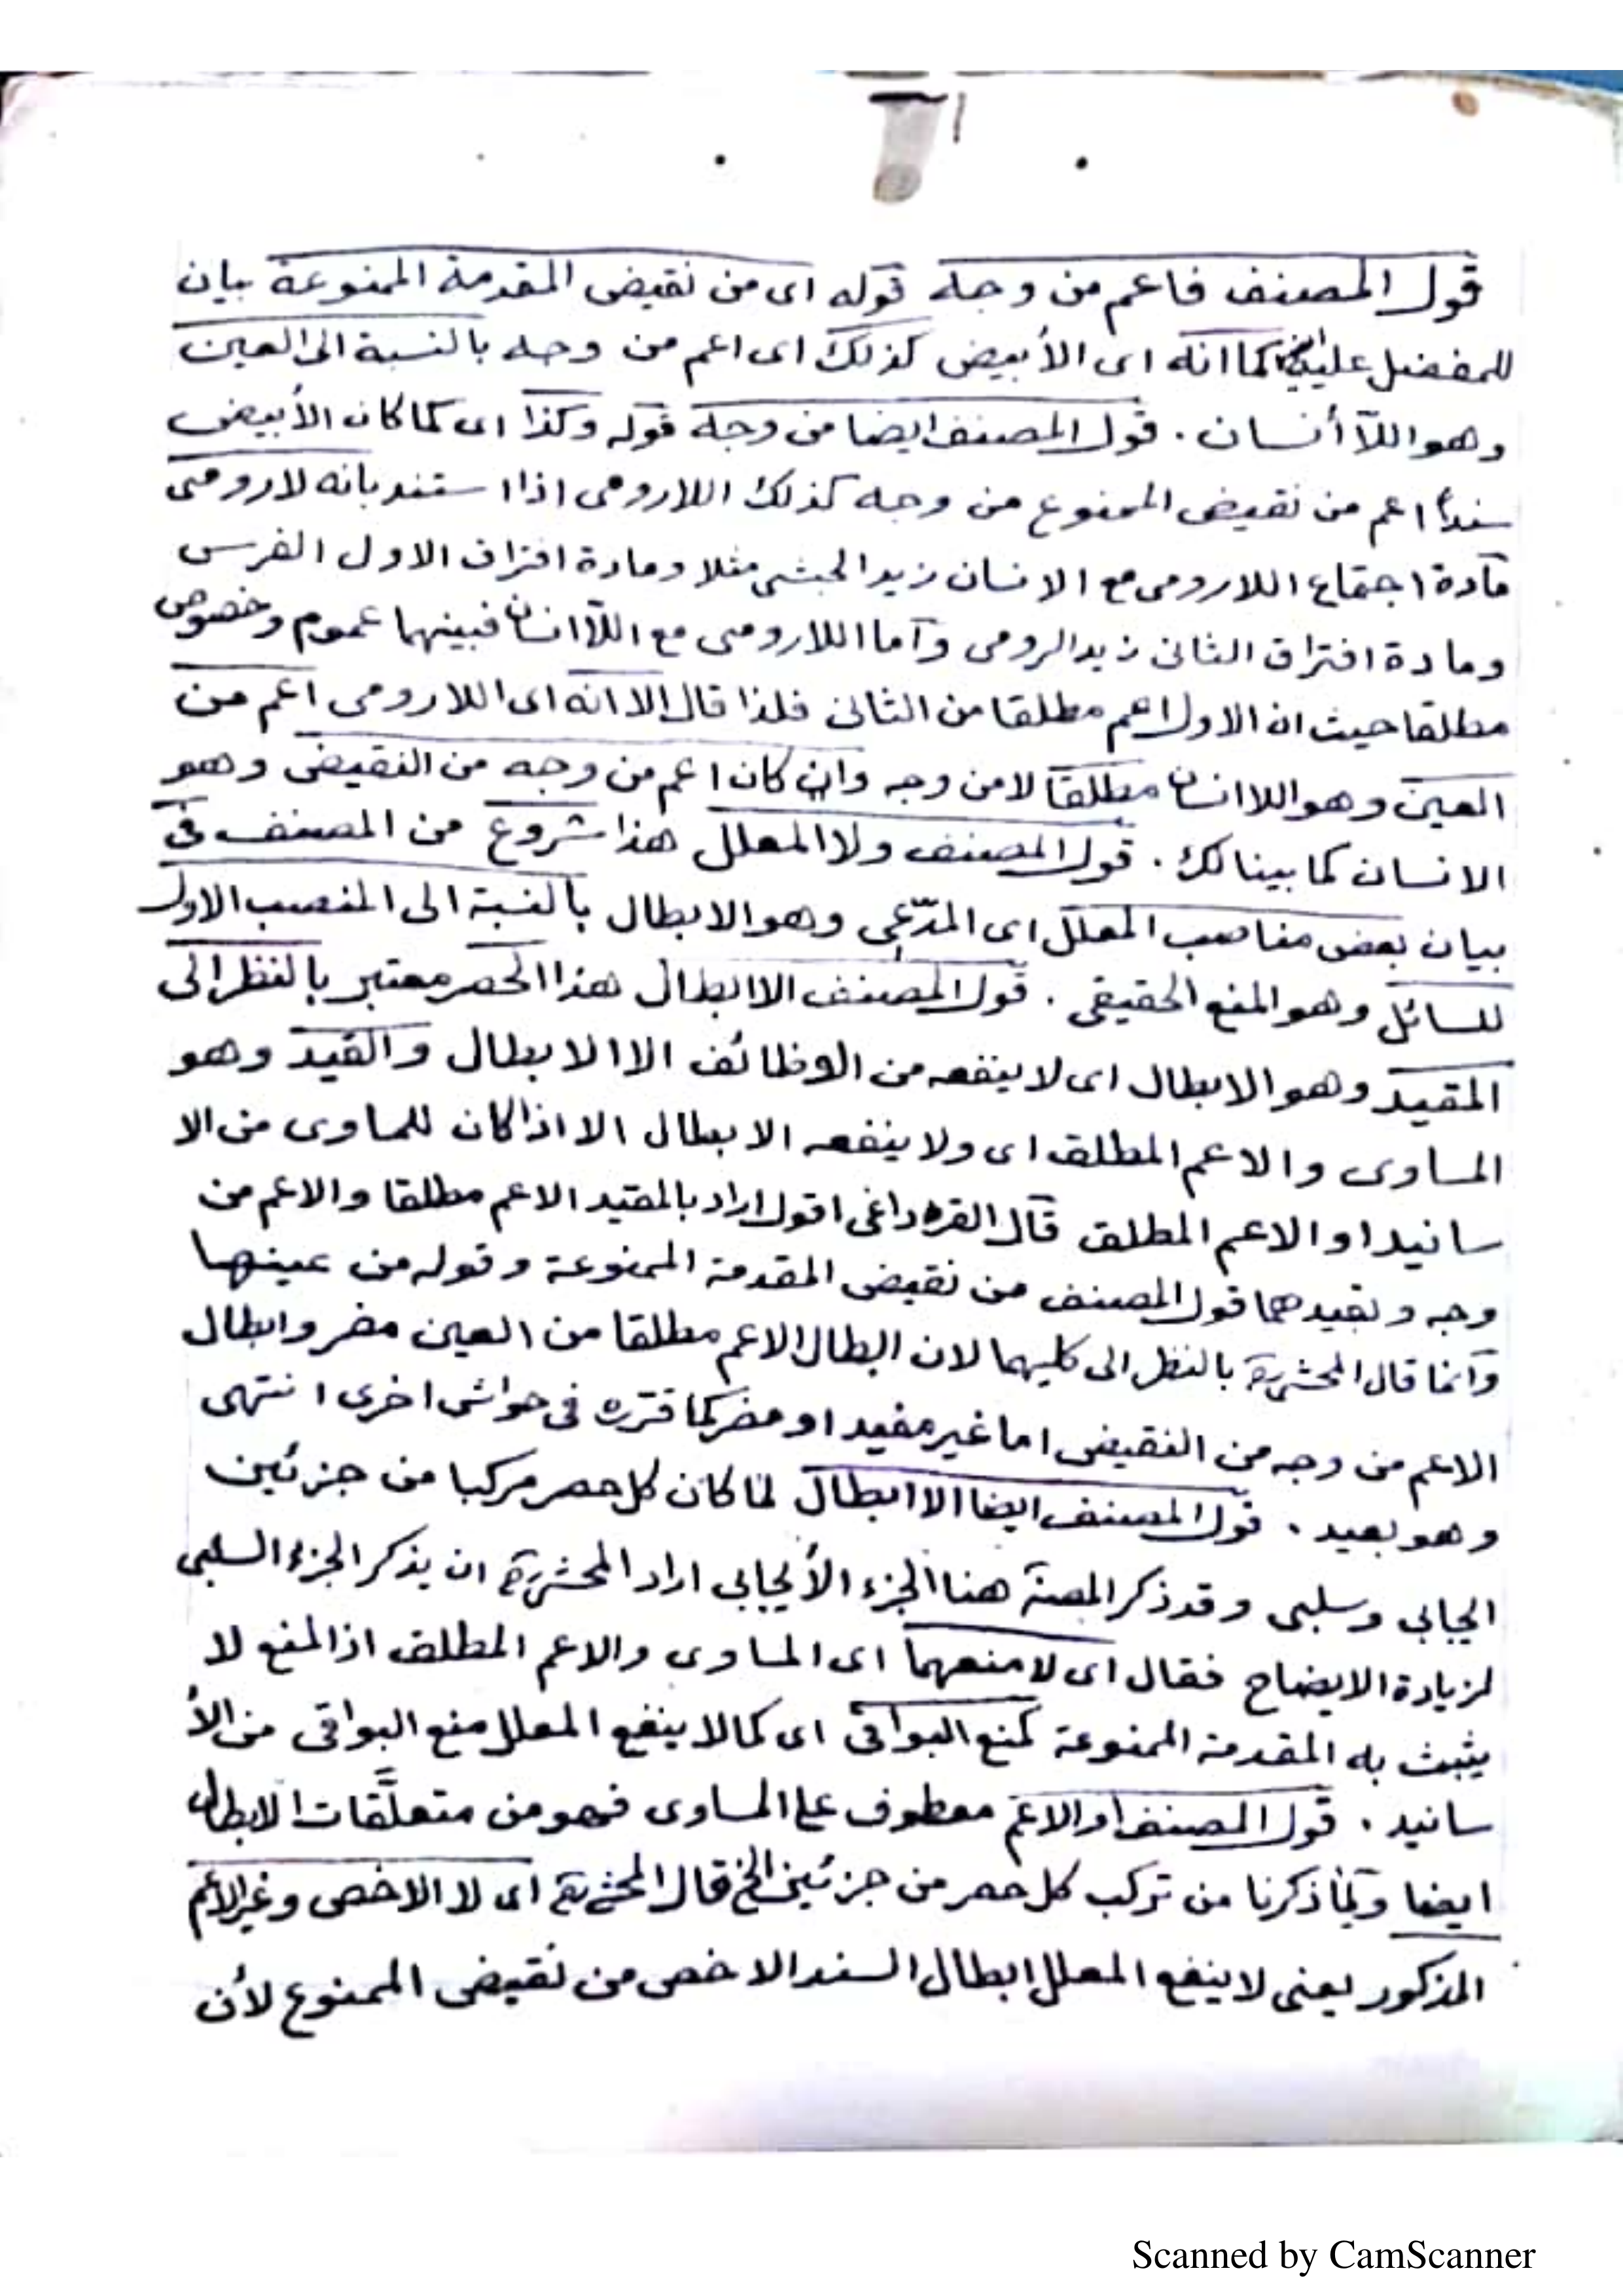 قول المصنف فاعم من وجه قوله اى من نقيض المقدمة الممنوعة بيان
للمفضل عليه كما انه اى الأبيض كذلك اى اعم من وجه بالنسبة الى العين
وهو اللاأنسان . قول المصنف ايضا من وجه قوله وكذا اى كما كان الأبيض
سنداً اعم من نقيض الممنوع من وجه كذلك اللارومى اذا استند بانه لارومى
مادة اجتماع اللارومى مع الانسان زيد الحبشى مثلا ومادة افتراق الاول الفرس
ومادة افتراق الثانى زيد الرومى وأما اللارومى مع اللاانسان فبينهما عموم وخصوص
مطلقا حيث ان الاول اعم مطلقا من الثانى فلذا قال الا انه اى اللارومى اعم من
العين وهو اللاانسان مطلقا لا من وجه وان كان اعم من وجه من النقيض وهو
الانسان كما بينا لك . قول المصنف ولا المعلل هذا شروع من المصنف فى
بيان بعض مناصب المعلل اى المدّعى وهو الابطال بالنسبة الى المنصب الاول
للسائل وهو المنع الحقيقى . قول المصنف الا ابطال هذا الحصر معتبر بالنظر الى
المقيد وهو الابطال اى لا ينفعه من الوظائف الا الابطال والقيد وهو
المساوى والاعم المطلق اى ولا ينفعه الابطال الا اذا كان للمساوى من الا
سانيد او الاعم المطلق قال القره داغى اقول اراد بالمقيد الاعم مطلقا والاعم من
وجه وبقيدهما قول المصنف من نقيض المقدمة الممنوعة وقوله من عينها
وانما قال المحشى بالنظر الى كليهما لان ابطال الاعم مطلقا من العين مضر وابطال
الاعم من وجه من النقيض اما غير مفيد او مضر كما قرره فى حواشى اخرى انتهى
وهو بعيد . قول المصنف ايضا الا ابطال لما كان كل حصر مركبا من جزئين
ايجابى وسلبى وقد ذكر المصنف هنا الجزء الأيجابى اراد المحشى ان يذكر الجزء السلبى
لزيادة الايضاح فقال اى لا منعهما اى المساوى والاعم المطلق اذ المنع لا
يثبت به المقدمة الممنوعة كمنع البواقى اى كما لا ينفع المعلل منع البواقى من الأ
سانيد . قول المصنف او الاعم معطوف على المساوى فهو من متعلَّقات الابطال
ايضا ولما ذكرنا من تركب كل حصر من جزئين الخ قال المحشى اى لا الاخص وغير الاعم
المذكور يعنى لا ينفع المعلل ابطال السند الاخص من نقيض الممنوع لأن
Scanned by CamScanner